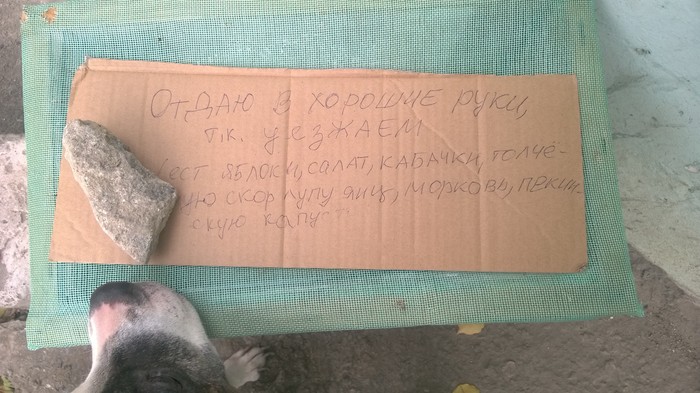 Отдаю в хорошие руки,
т.к. уезжаем
ест яблоки, салат, кабачки, толчё-
ую скорлупу яиц, морковь, пекин-
скую капуст